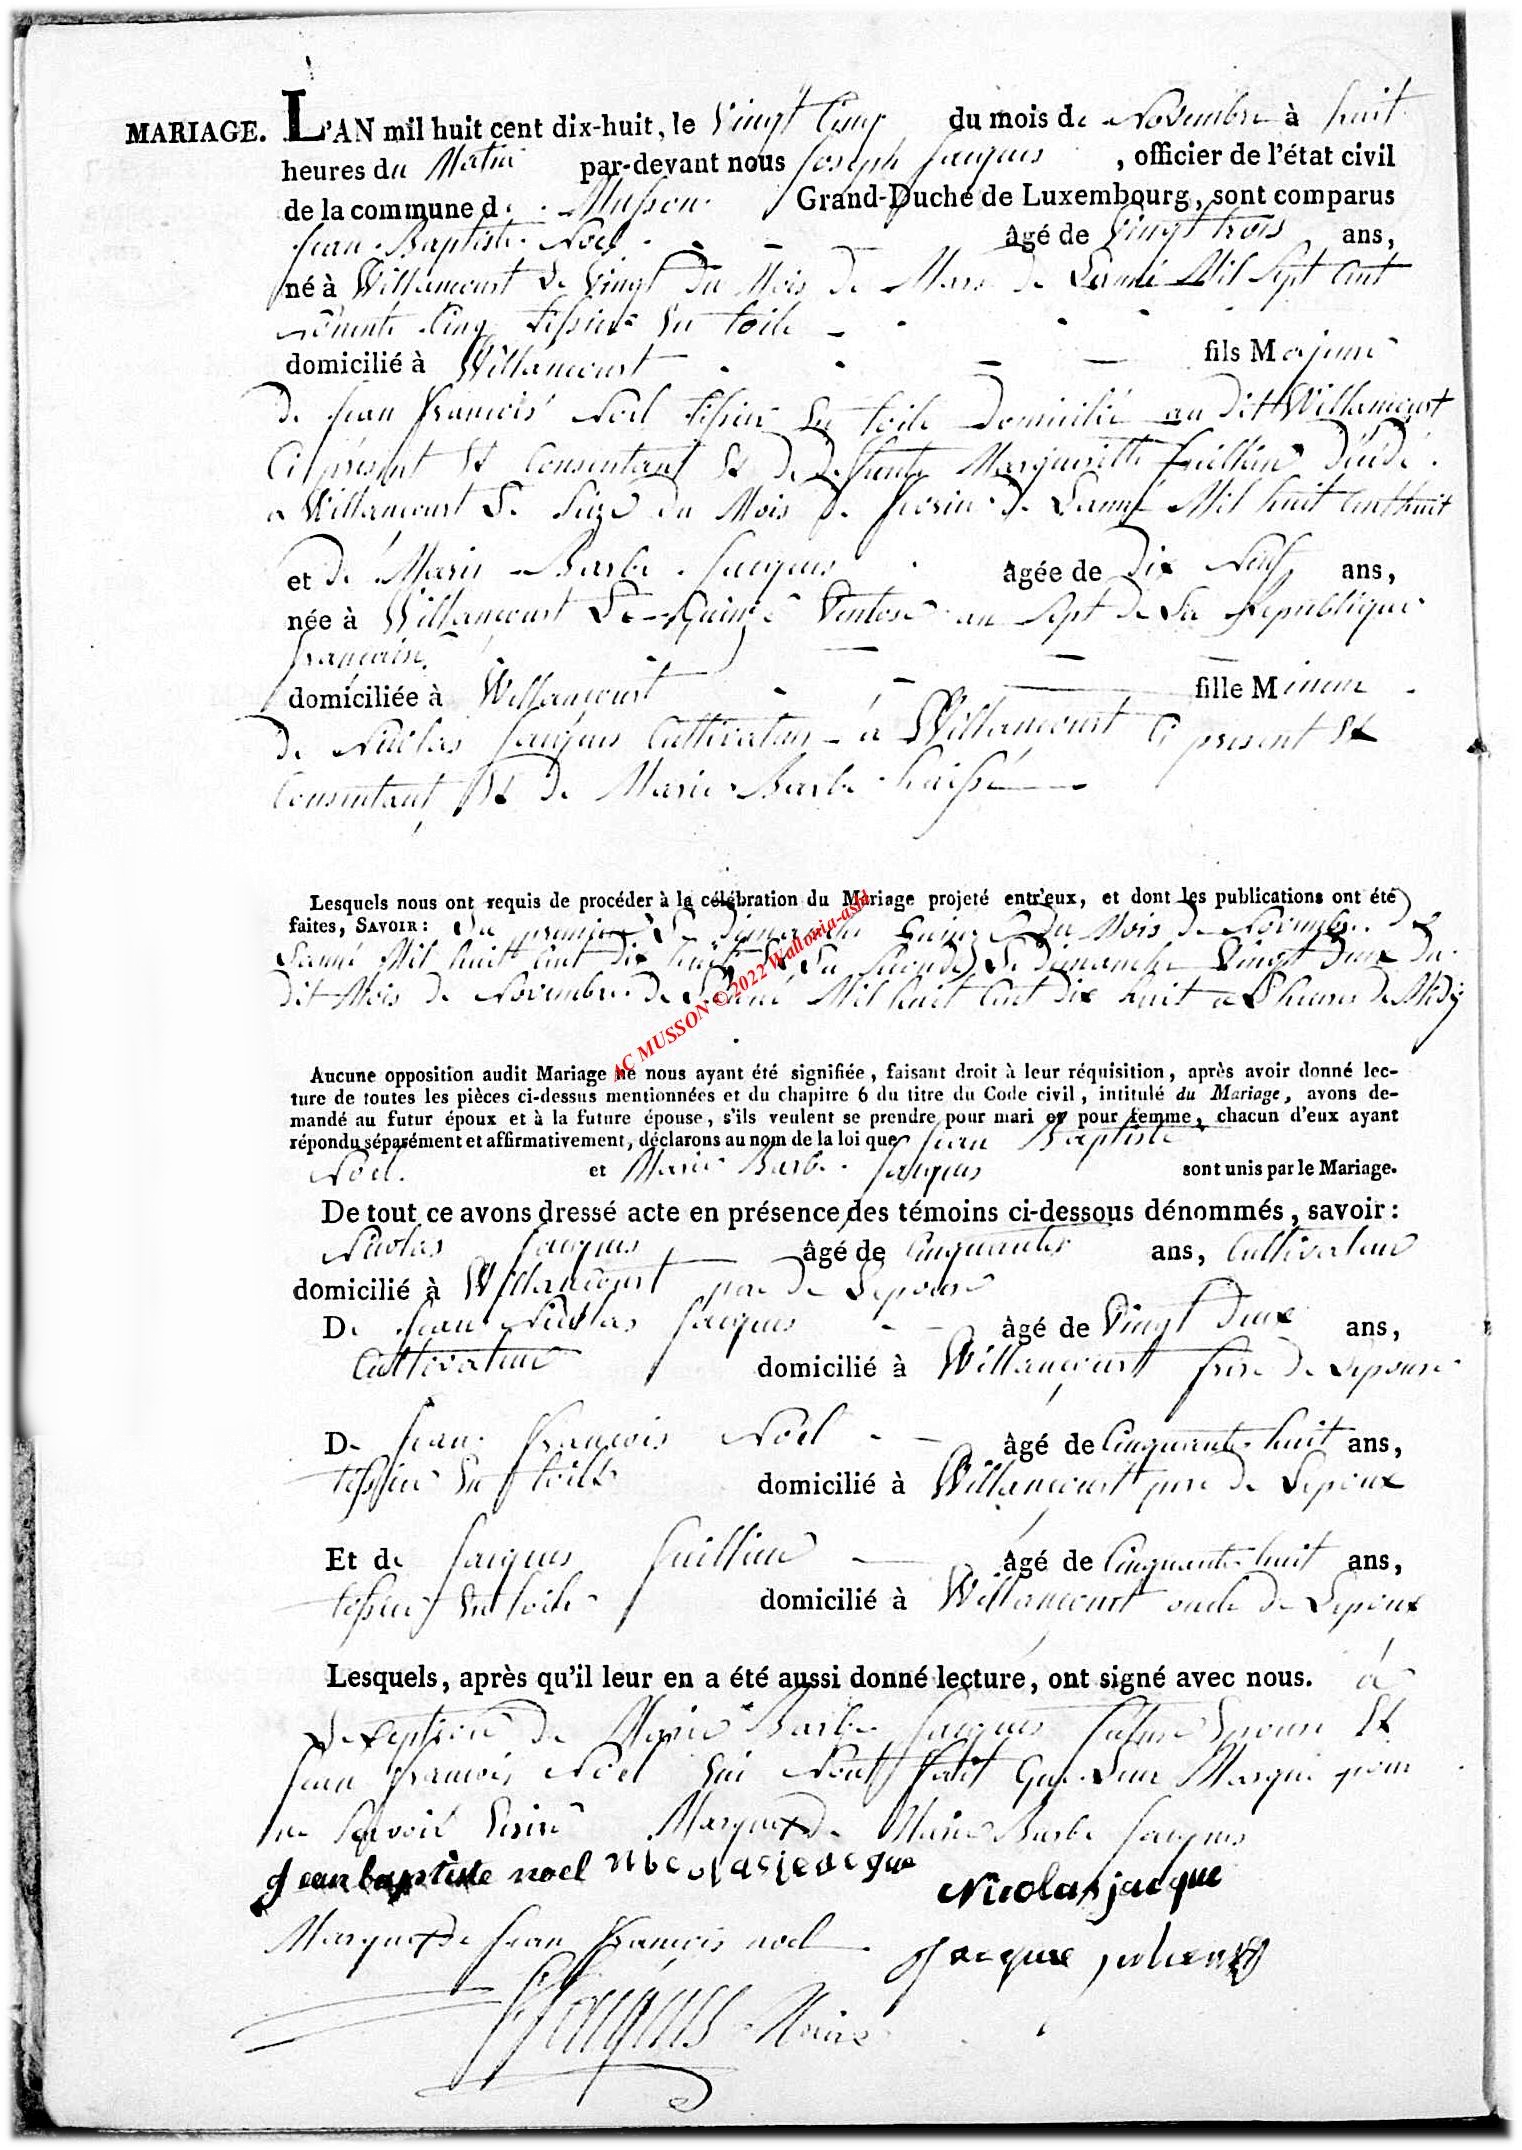 MARIAGE. L'AN mil huit cent dix-huit, le Vingt Cinq du mois de Novembre à huit
heures du Matin par-devant nous Joseph Jacques , officier de l'état civil
de la commune de Musson Grand-Duché de Luxembourg, sont comparus
Jean Baptiste Noel âgé de Vingt trois ans,
né à Willancourt Le Vingt Du Mois De Mars De Lanné Mil Sept Cent
Cinq tissier En toile
domicilié à Willancourt fils Majeure
De Jean François Noel tissier En toile Domicilié au Dit Willancourt
Ci présent Et Consentant Et De Defunte Marguerite Décédé
a Willancourt Le Seize du Mois De De Lanné Mil huit Cent huit
et De Marie Barbe Jacques agée de Dix Neuf ans,
née à Willancourt Le Quinze Ventose an Sept De La Republique
francaise
domiciliée à Willancourt fille Mineur
De Nicolas Jacques Cultivateur à Willancourt Ci present Et
Consentant Et De Marie Barbe
Lesquels nous ont requis de procéder à la célébration du Mariage projeté entr'eux, et dont les publications ont été
faites, SAVOIR: La premiere Le Dimanche Quinze Du Mois De Novembre De
Lanné Mil huit Cent Dix huit Et La Seconde Le Dimanche Vingt Deux Du
Dit Mois De Novembre De Lanné Mil huit Cent Dix huit a heures De Midy
AC MUSSON ©2022 Wallonia-asbl
Aucune opposition audit Mariage ne nous ayant été signifiée, faisant droit à leur réquisition, après avoir donné lec-
ture de toutes les pièces ci-dessus mentionnées et du chapitre 6 du titre du Code civil, intitulé du Mariage, avons de-
mandé au futur époux et à la future épouse, s'ils veulent se prendre pour mari et pour femme, chacun d'eux ayant
répondu séparément et affirmativement, déclarons au nom de la loi que Jean Baptiste
Noel. et Marie Barbe Jacques sont unis par le Mariage.
De tout ce avons dressé acte en présence des témoins ci-dessous dénommés, savoir:
Nicolas Jacques âgé de ans, Cultivateur
domicilié à Willancourt pere De Lepouse
De Jean Nicolas Jacques âgé de Vingt Deux ans,
Cultivateur domicilié à Willancourt frere De Lepouse
De Jean François Noël âgé de Cinquante huit ans,
tissier En toile domicilié à Willancourt pere De Lepoux
Et de Jacques âgé de Cinquante huit ans,
tissier En toile domicilié à Willancourt oncle De Lepoux
Lesquels, après qu'il leur en a été aussi donné lecture, ont signé avec nous. à
Lexeption De Marie Barbe Jacques future Epouse Et
Jean François Noel qui Nont fait que Leur Marque pour
ne Savoir Ecrire Marque x De Marie Barbe Jacques
Jean baptiste noel nicolas jacque Nicolas jacque
Marque x De Jean François noel Jacque
Jacques Maire